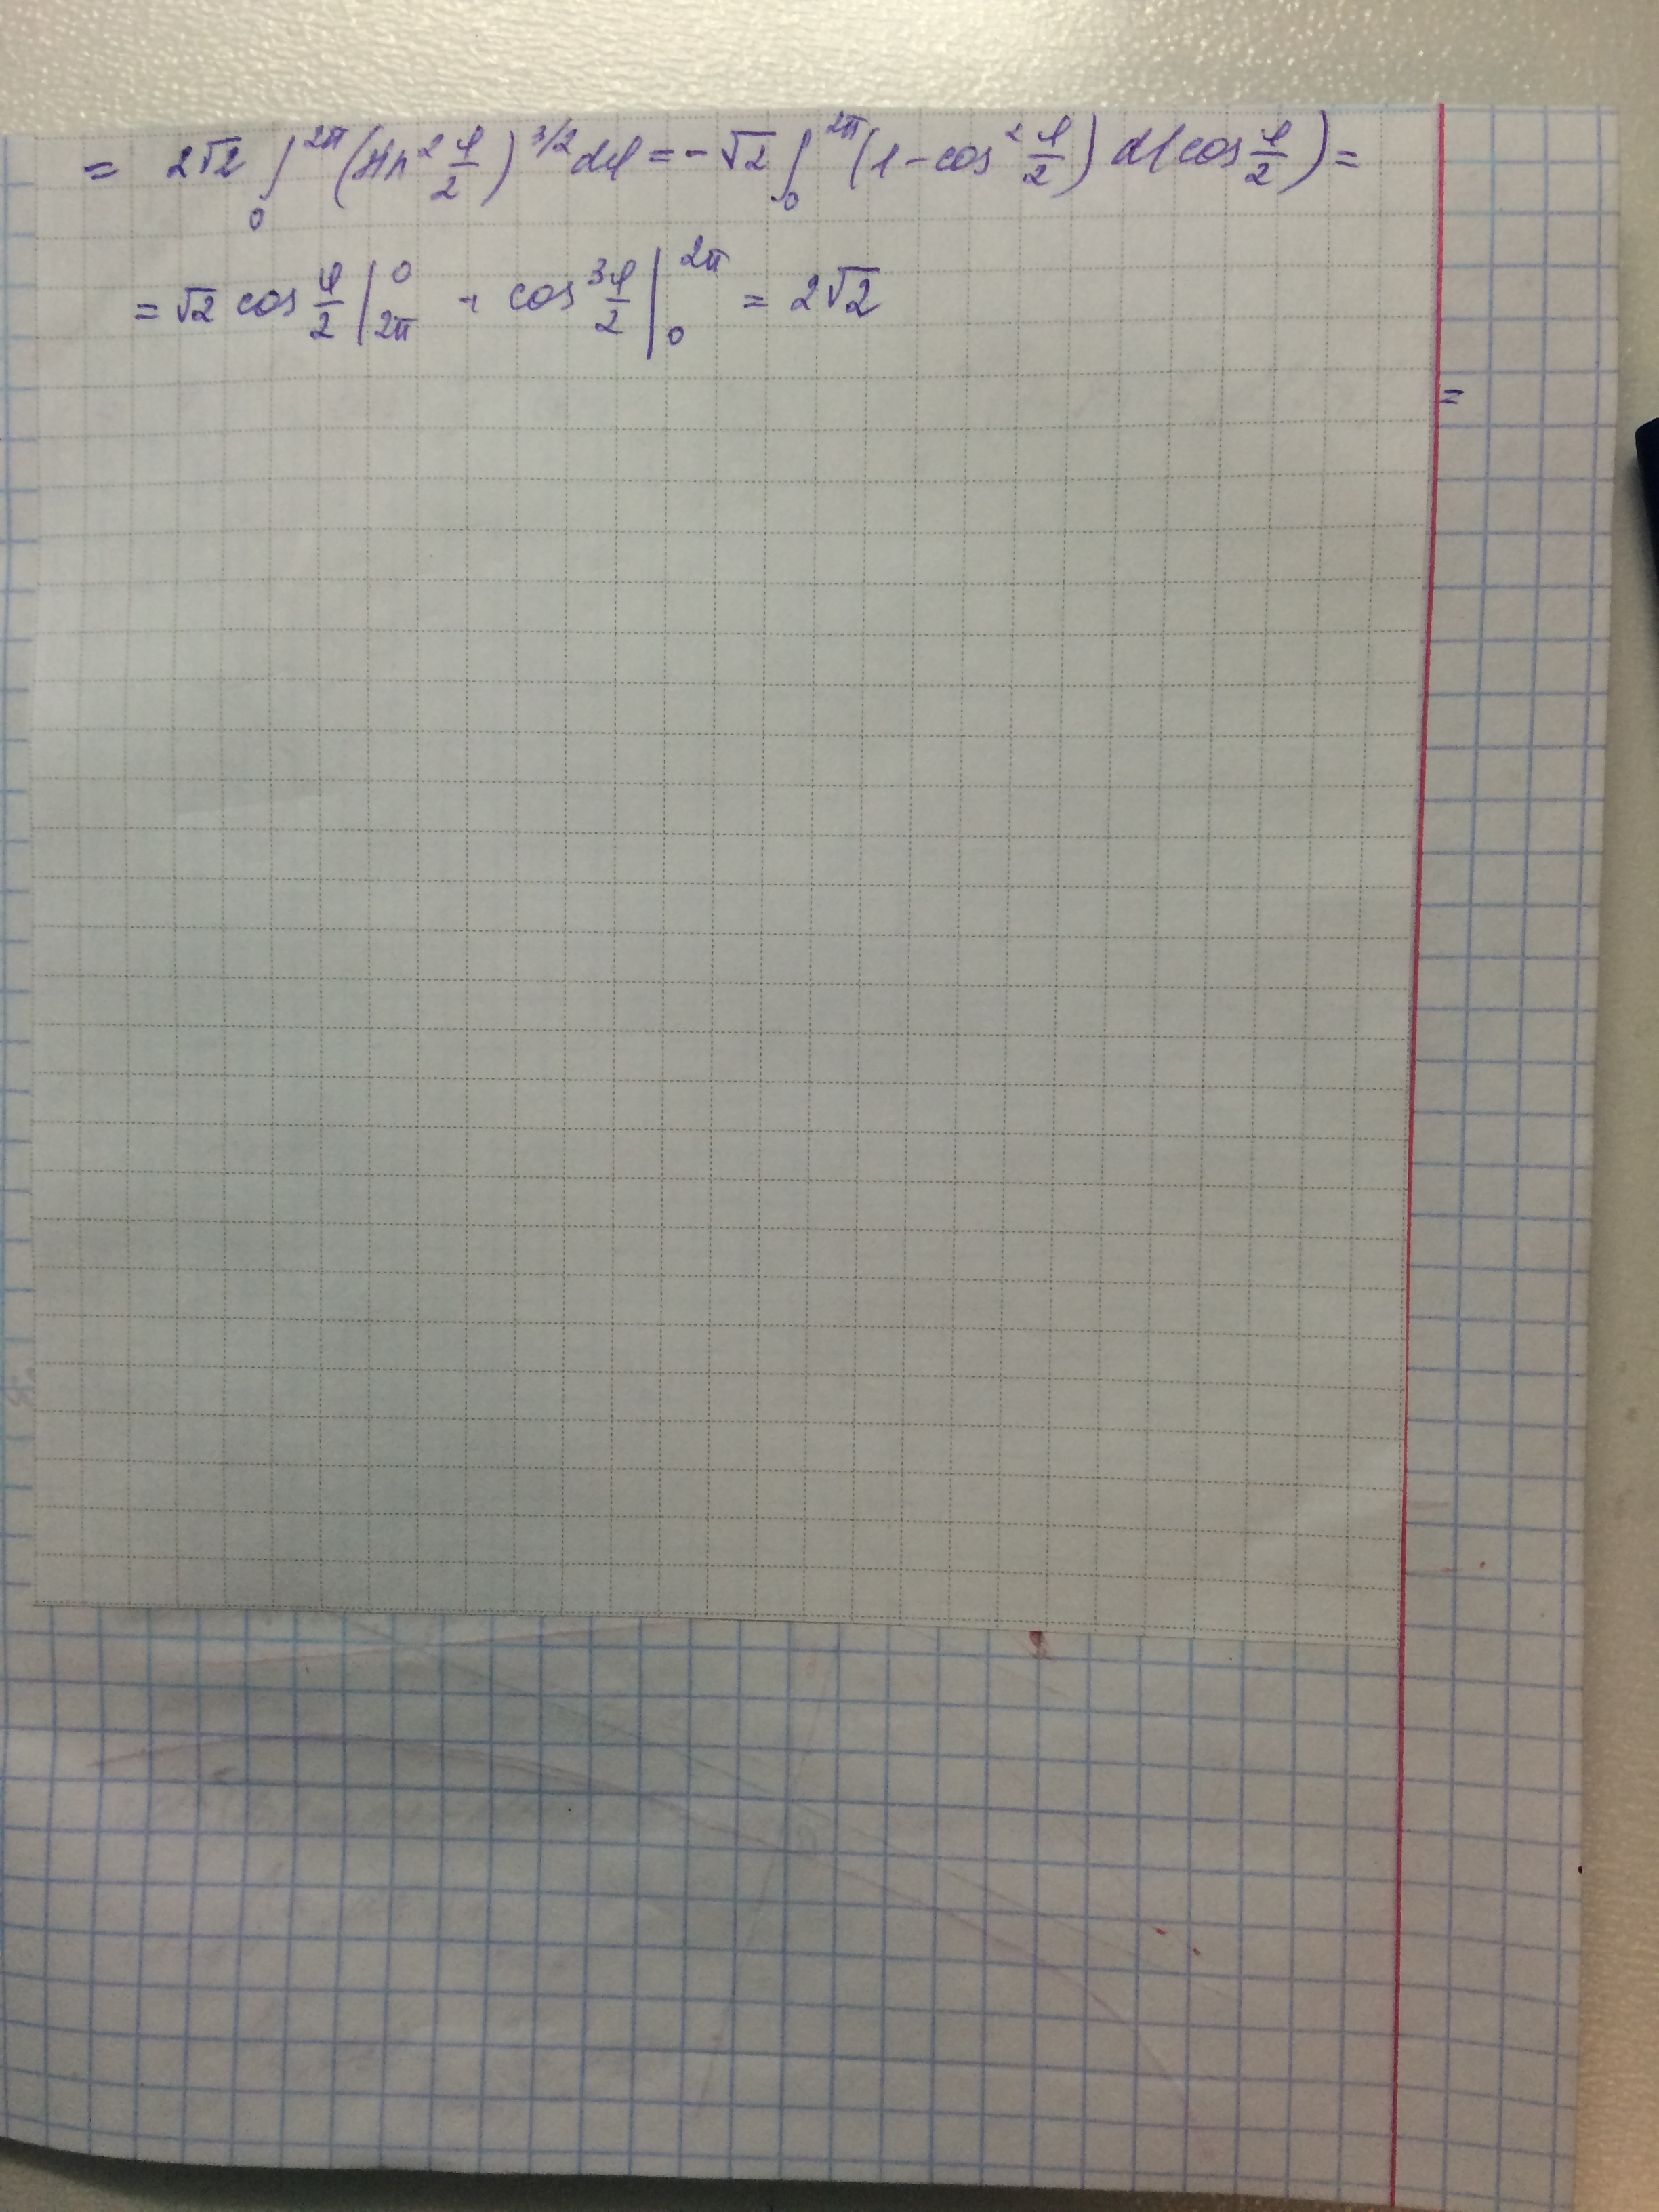 = 2√2 ∫₀^{2π} (sin² φ/2)^{3/2} dφ = -√2 ∫₀^{2π} (1 - cos² φ/2) d(cos φ/2) =
= √2 cos φ/2 |_{2π}^{0} + cos³ φ/2 |_{0}^{2π} = 2√2
=